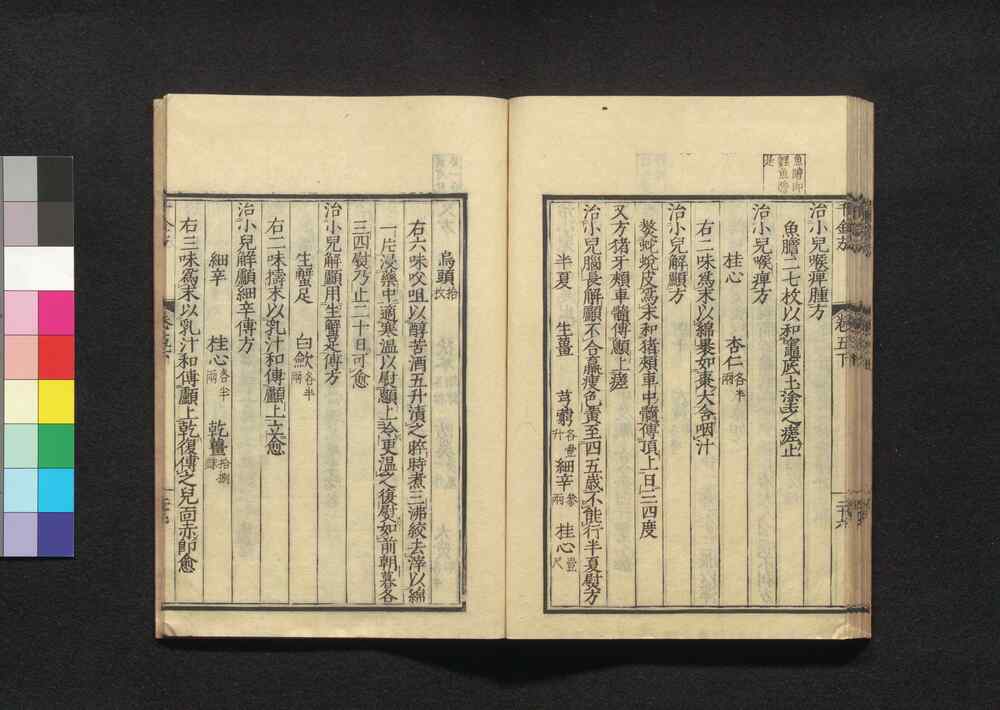 魚膽卽
鯉魚膽
是
治小兒喉痺腫方
魚膽二七枚以和竈底土塗之瘥止
治小兒喉痺方
桂心　杏仁各半兩
右二味爲末以綿裹如棗大含咽汁
治小兒解顱方
熬蛇蛻皮爲末和猪頰車中髓傅頂上日三四度
又方猪牙頰車髓傅顖上瘥
治小兒腦長解顱不合羸瘦色黃至四五歲不能行半夏熨方
半夏　生薑　芎藭各壹升　細辛叄兩　桂心壹尺
烏頭拾枚
右六味㕮咀以醇苦酒五升漬之晬時煮三沸絞去滓以綿
一片浸藥中適寒溫以熨顱上冷更溫之復熨如前朝暮各
三四熨乃止二十日可愈
治小兒解顱用生蟹足傅方
生蟹足　白斂各半兩
右二味擣末以乳汁和傅顱上立愈
治小兒解顱細辛傅方
細辛　桂心各半兩　乾薑拾捌銖
右三味爲末以乳汁和傅顱上乾復傅之兒面赤卽愈